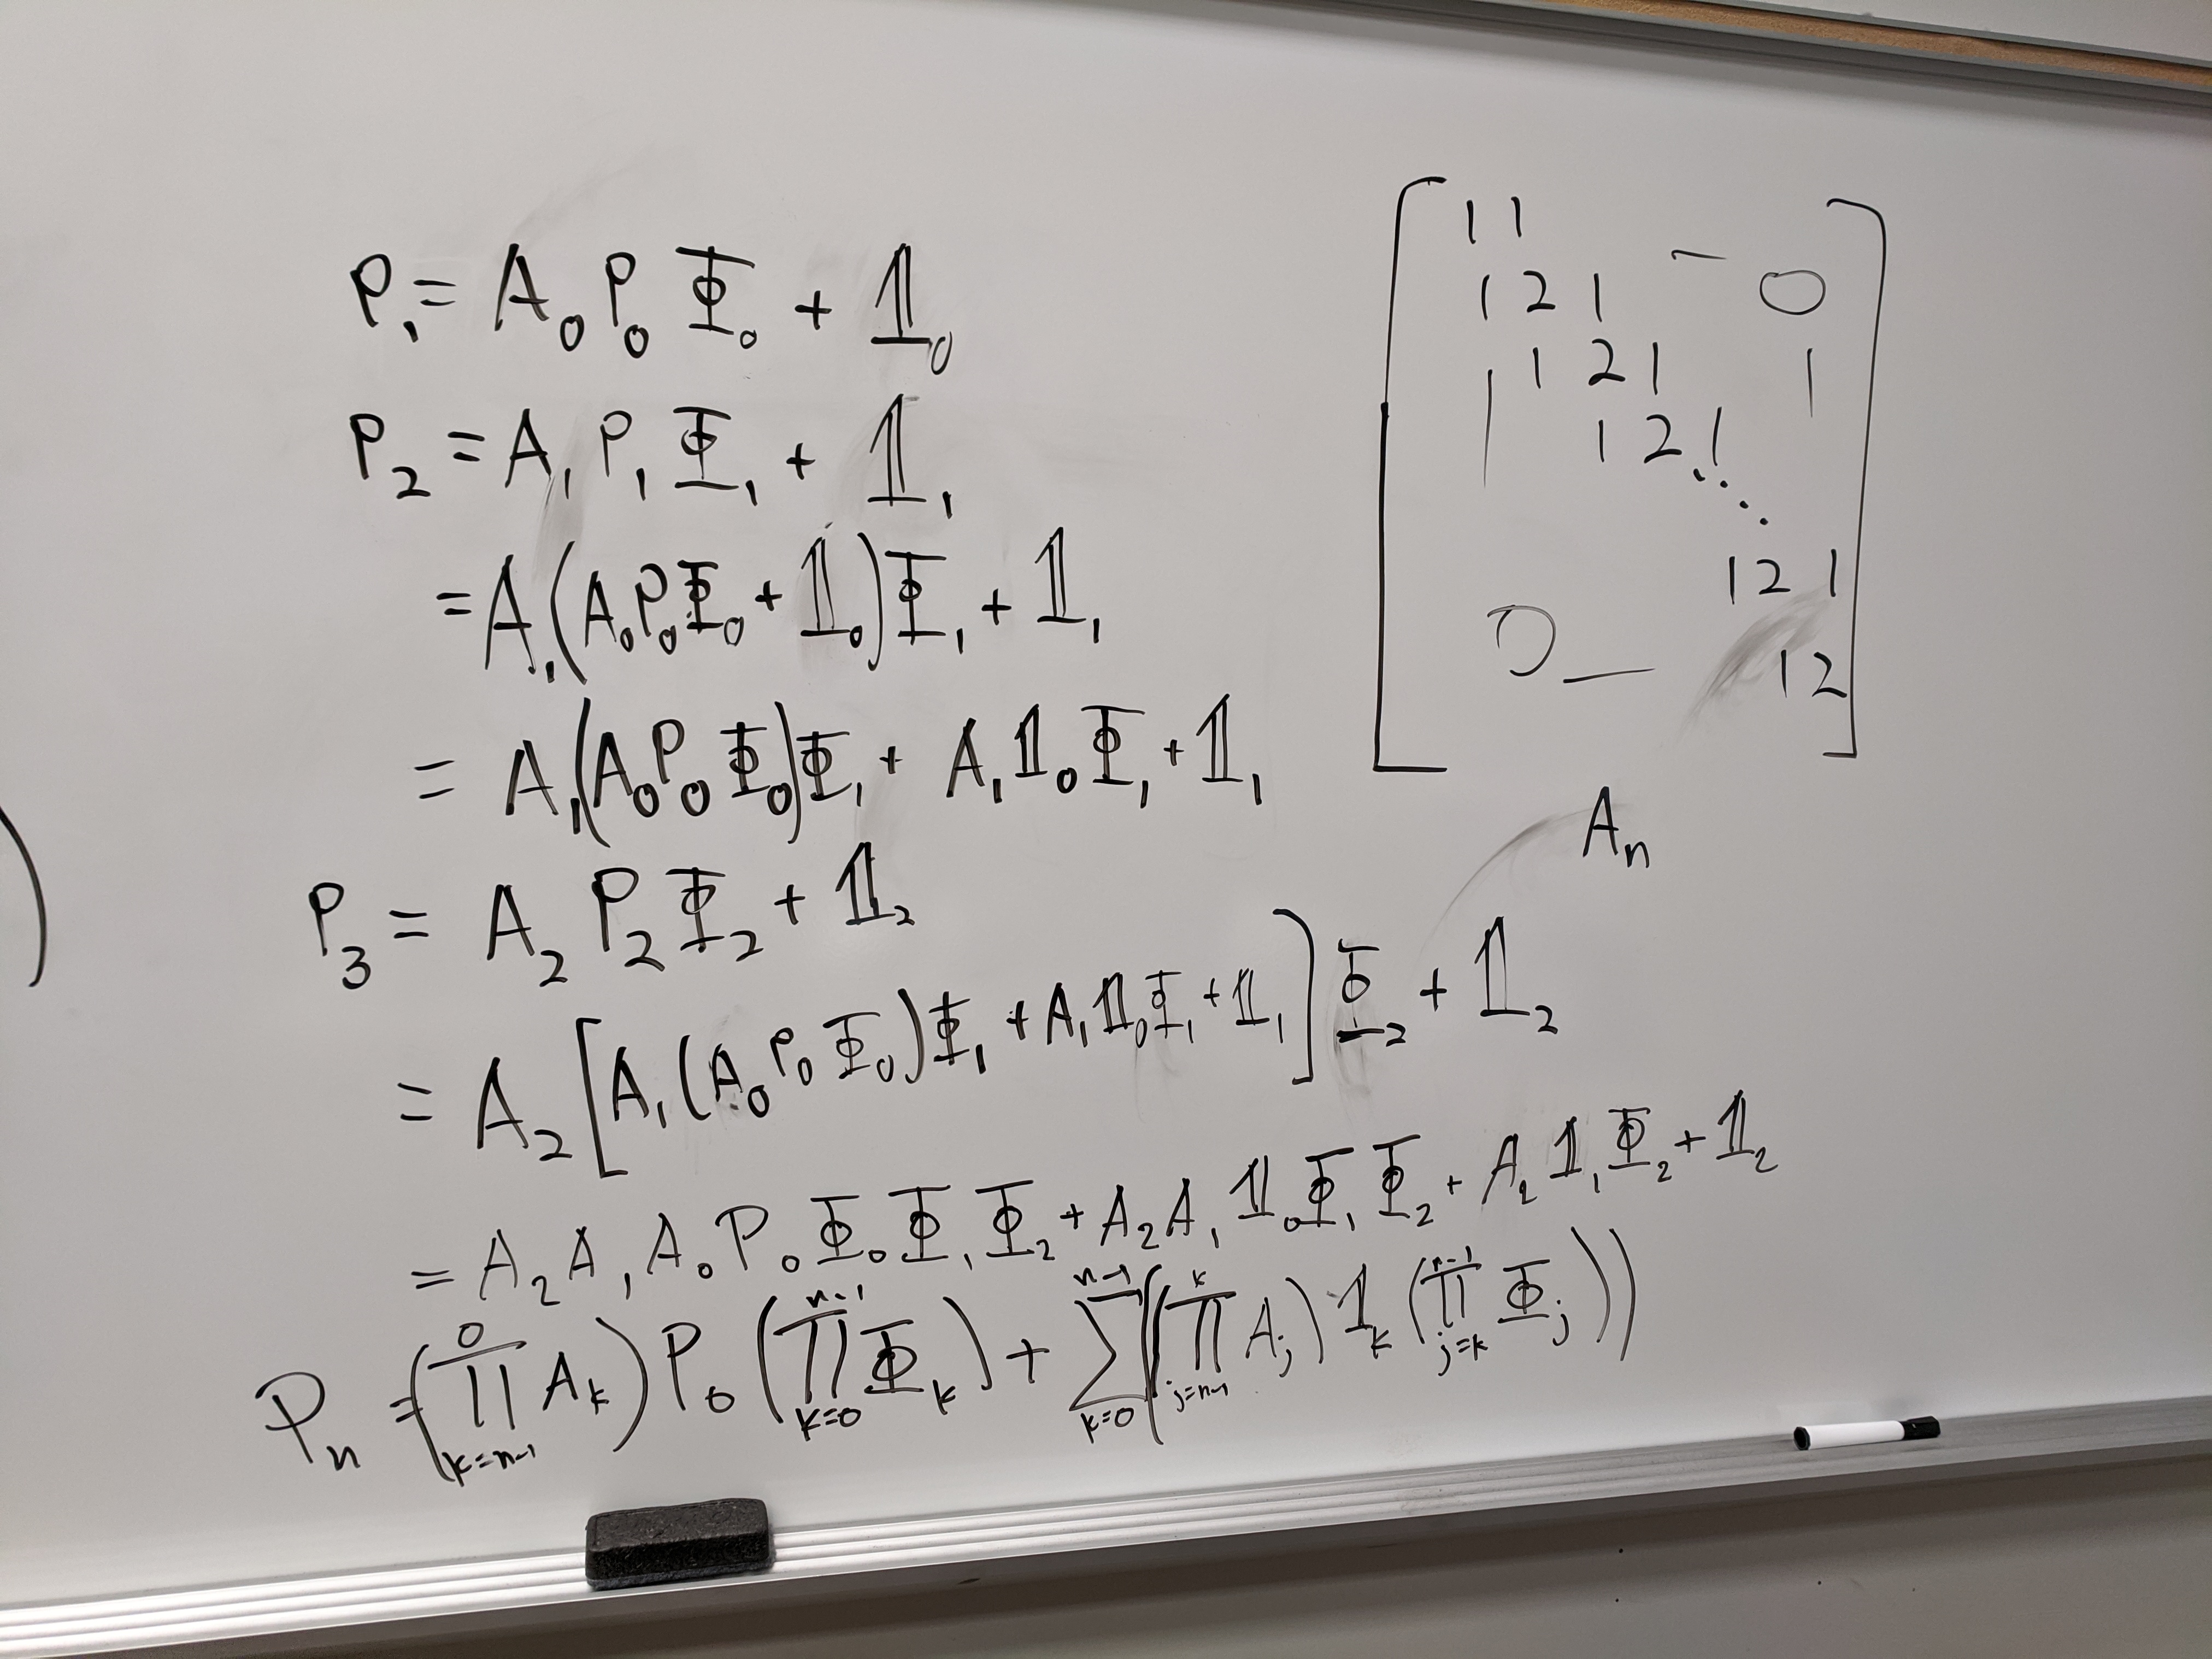 P₁ = A₀ P₀ Φ₀ + 𝟙₀
P₂ = A₁ P₁ Φ₁ + 𝟙₁
= A₁ (A₀P₀Φ₀ + 𝟙₀) Φ₁ + 𝟙₁
= A₁ (A₀P₀Φ₀) Φ₁ + A₁ 𝟙₀ Φ₁ + 𝟙₁
P₃ = A₂ P₂ Φ₂ + 𝟙₂
= A₂ [A₁ (A₀P₀Φ₀) Φ₁ + A₁ 𝟙₀ Φ₁ + 𝟙₁] Φ₂ + 𝟙₂
= A₂ A₁ A₀ P₀ Φ₀ Φ₁ Φ₂ + A₂ A₁ 𝟙₀ Φ₁ Φ₂ + A₂ 𝟙₁ Φ₂ + 𝟙₂
Pₙ = (∏_{k=n-1}^{0} A_k) P₀ (∏_{k=0}^{n-1} Φ_k) + ∑_{k=0}^{n-1} ((∏_{j=n-1}^{k} A_j) 𝟙_k (∏_{j=k}^{n-1} Φ_j))
1 1
1 2 1 – 0
| 1 2 1 |
1 2 1
⋱
1 2 1
0 — 1 2
Aₙ